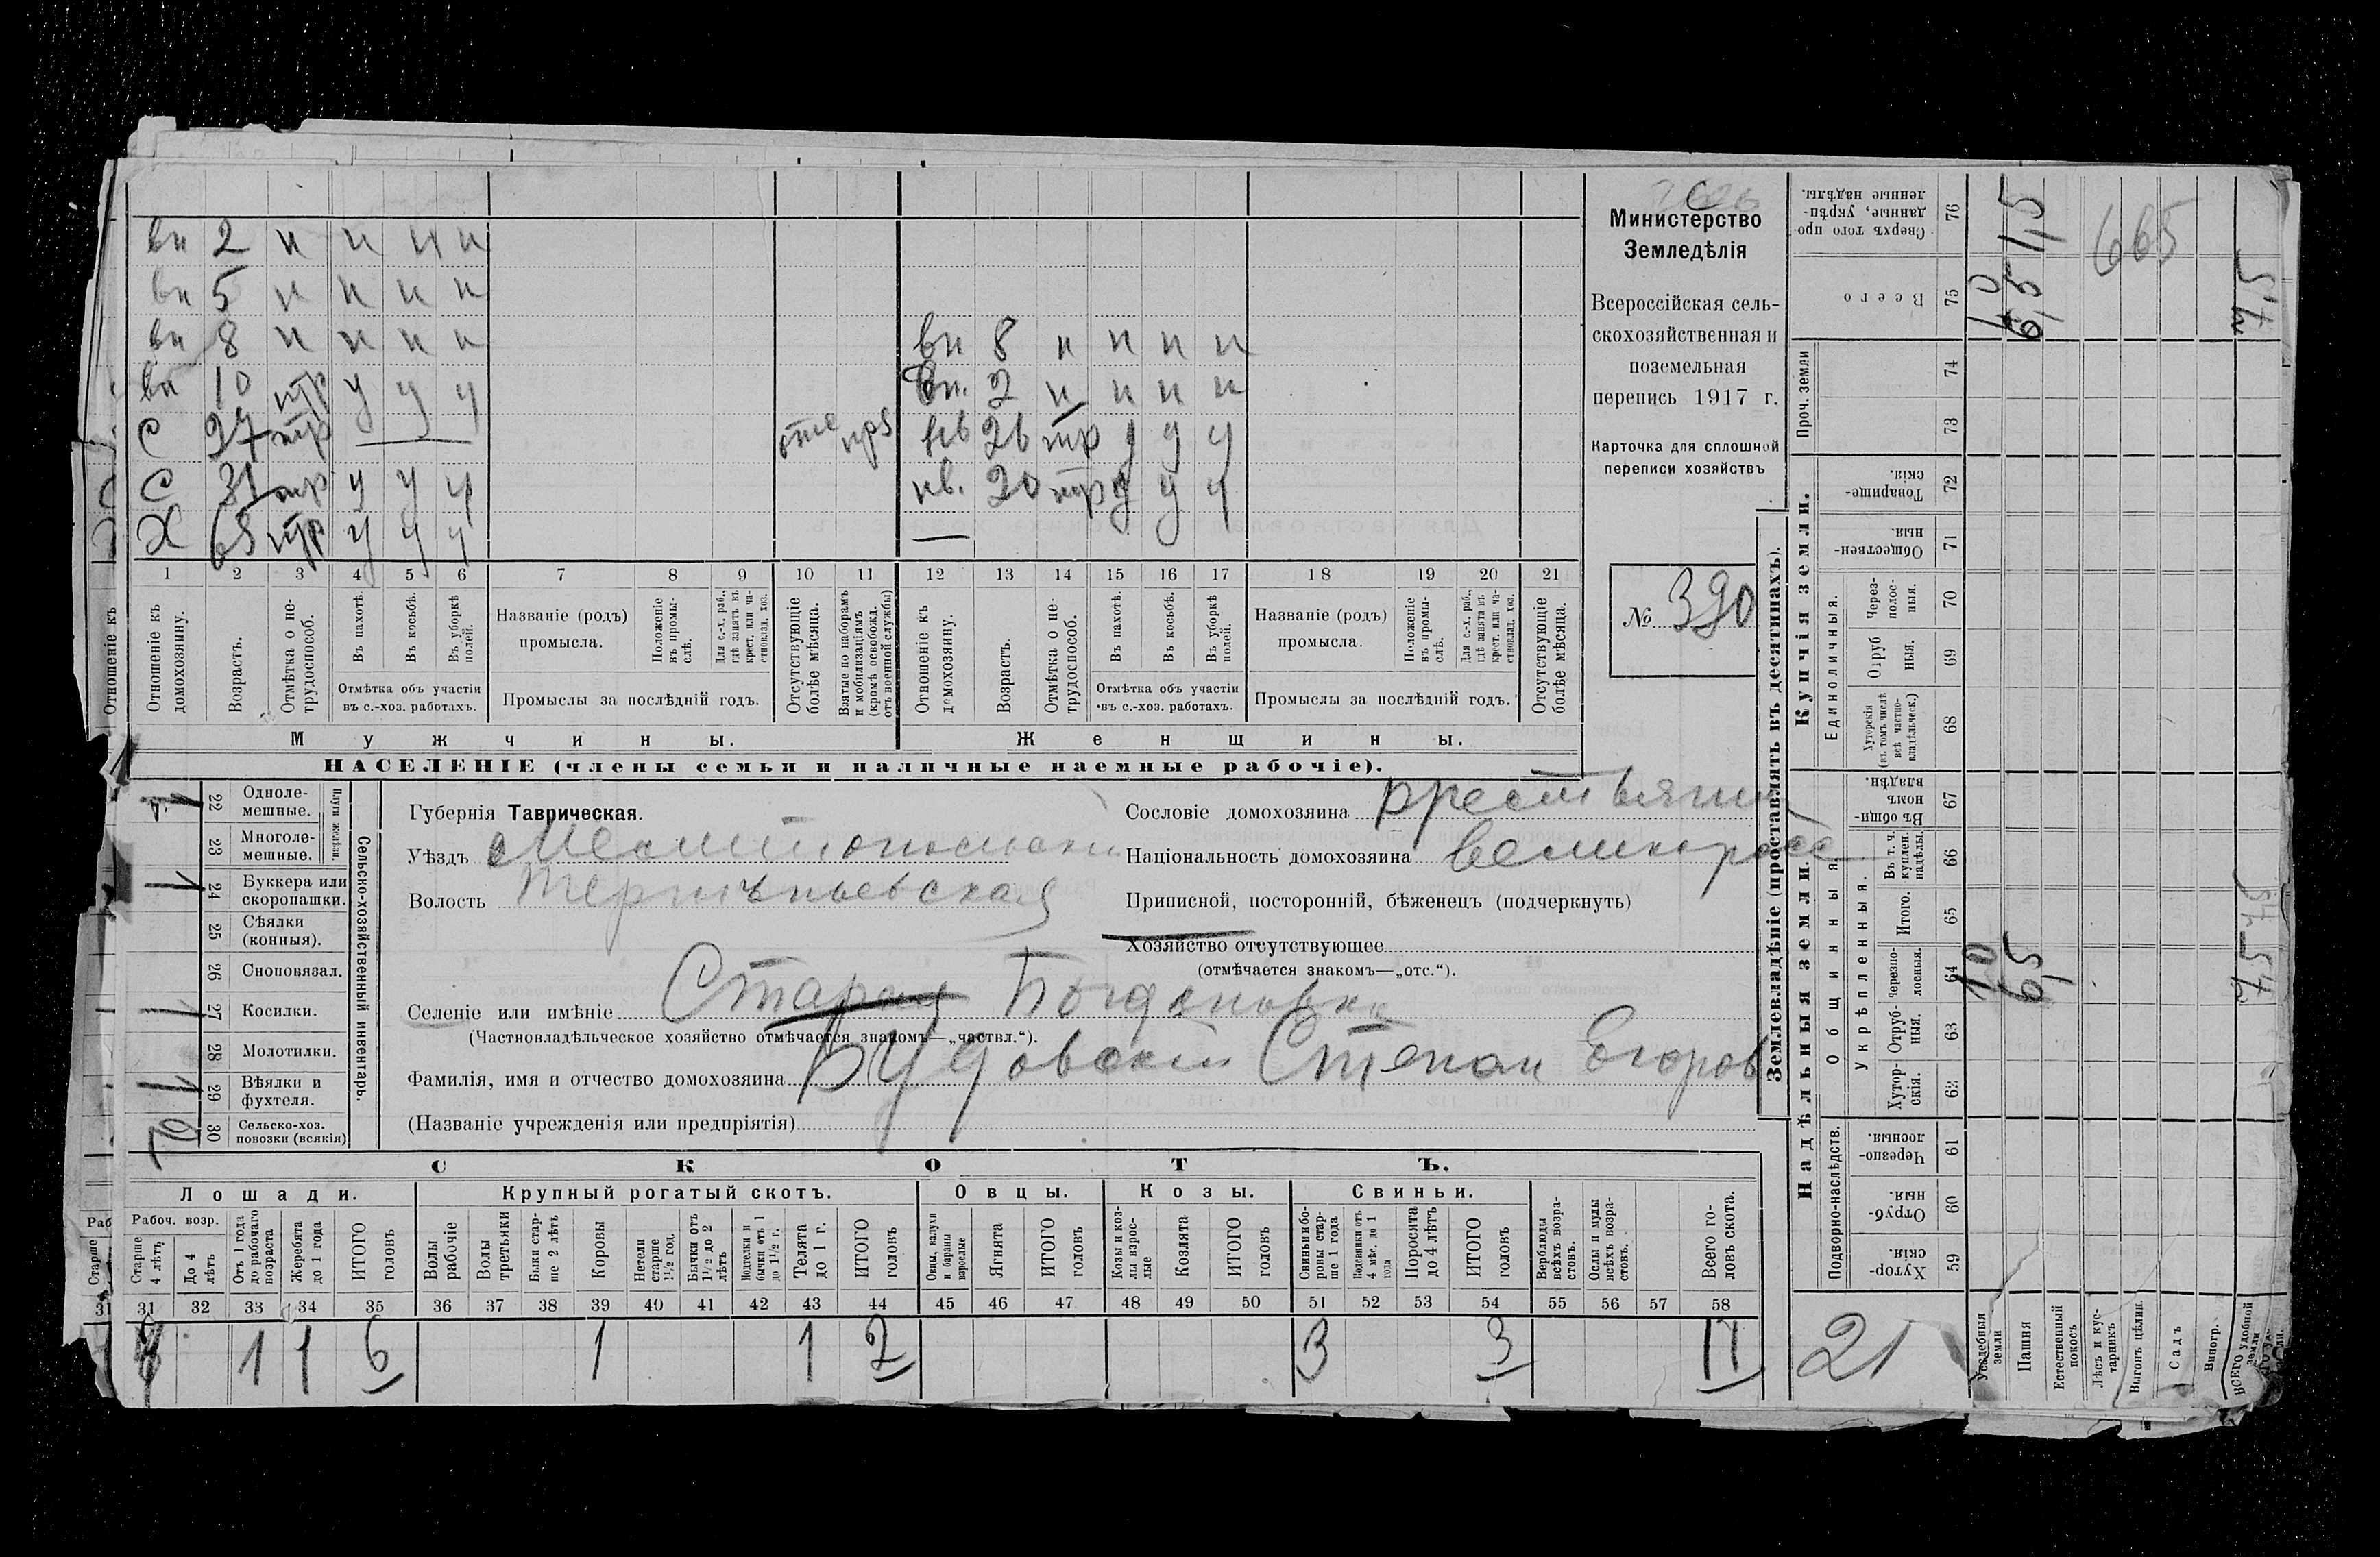 вн 2 н н н н
вн 5 н н н н
вн 8 н н н н вн 8 н н н н
вн 10 нтр у у у вн. 2 н н н н
С 27 тр отс прз нв 26 тр у у у
С 31 тр у у у нв. 20 тр у у у
Х 65 нтр у у у —
1 2 3 4 5 6 7 8 9 10 11 12 13 14 15 16 17 18 19 20 21
Отношеніе къ
Отношеніе къ домохозяину.
Возрастъ.
Отмѣтка о нетрудоспособ.
Въ пахотѣ.
Въ косьбѣ.
Въ уборкѣ полей.
Отмѣтка объ участіи въ с.-хоз. работахъ.
Названіе (родъ) промысла.
Положеніе въ промыслѣ.
Для с.-х. раб., гдѣ занятъ въ крест. или частновлад. хоз.
Промыслы за послѣдній годъ.
Отсутствующіе болѣе мѣсяца.
Взятые по наборамъ и мобилизаціямъ (кромѣ освобожд. отъ военной службы)
Отношеніе къ домохозяину.
Возрастъ.
Отмѣтка о не трудоспособ.
Въ пахотѣ.
Въ косьбѣ.
Въ уборкѣ полей.
Отмѣтка объ участіи въ с.-хоз. работахъ.
Названіе (родъ) промысла.
Положеніе въ промыслѣ.
Для с.-х. раб., гдѣ занятъ въ крест. или частновлад. хоз.
Промыслы за послѣдній годъ.
Отсутствующіе болѣе мѣсяца.
Мужчины. Женщины.
НАСЕЛЕНІЕ (члены семьи и наличные наемные рабочіе).
Министерство
Земледѣлія
Всероссійская сель-
скохозяйственная и
поземельная
перепись 1917 г.
Карточка для сплошной
переписи хозяйствъ
№ 390
Сельско-хозяйственный инвентарь.
Плуги желѣзн.
1 22 Одноле-мешные.
23 Многоле-мешные.
1 24 Буккера или скоропашки.
25 Сѣялки (конныя).
26 Сноповязал.
1 27 Косилки.
28 Молотилки.
1 29 Вѣялки и фухтеля.
30 Сельско-хоз. повозки (всякія)
Губернія Таврическая.
Уѣздъ Мелитопольскій
Волость Терпѣньевская
Сословіе домохозяина крестьянин
Національность домохозяина великоросс
Приписной, посторонній, бѣженецъ (подчеркнуть)
Хозяйство отсутствующее
(отмѣчается знакомъ—„отс.“).
Селеніе или имѣніе Старая Богдановка
(Частновладѣльческое хозяйство отмѣчается знакомъ—„частвл.“).
Фамилія, имя и отчество домохозяина Будовскій Степан Егоров
(Названіе учрежденія или предпріятія)
СКОТЪ.
Лошади. Крупный рогатый скотъ. Овцы. Козы. Свиньи.
Рабоч. возр.
Старше 4 лѣтъ
До 4 лѣтъ
Отъ 1 года до рабочаго возраста
Жеребята до 1 года
ИТОГО головъ
Волы рабочіе
Волы третьяки
Быки старше 2 лѣтъ
Коровы
Нетели старше 1½ год.
Бычки отъ 1½ до 2 лѣтъ
Подтелки и бычки отъ 1 до 1½ г.
Телята до 1 г.
ИТОГО головъ
Овцы, валухи и бараны взрослые
Ягнята
ИТОГО головъ
Козы и козлы взрослые
Козлята
ИТОГО головъ
Свиньи и боровы старше 1 года
Подсвинки отъ 4 мѣс. до 1 года
Поросята до 4 лѣтъ
ИТОГО головъ
Верблюды всѣхъ возрастовъ.
Ослы и мулы всѣхъ возрастовъ.
Всего головъ скота.
31 32 33 34 35 36 37 38 39 40 41 42 43 44 45 46 47 48 49 50 51 52 53 54 55 56 57 58
4 1 1 6 1 1 2 3 3 11
Землевладѣніе (проставлять въ десятинахъ).
Надѣльныя земли. Купчія земли.
Проч. земли
Общинныя.
Единоличныя.
Укрѣпленныя.
Подворно-наслѣдств.
Сверхъ того проданные, укрѣпленные надѣлы. 76
Всего 75
74
73
Товарищескія. 72
Общественныя. 71
Черезполосныя. 70
Отрубныя. 69
Хуторскія (въ томъ числѣ всѣ частновладѣльческ.) 68
Въ общинномъ владѣн. 67
Въ т. ч. куплен. надѣлы. 66
Итого. 65
Черезполосныя. 64
Отрубныя. 63
Хуторскія. 62
Черезполосныя. 61
Отрубныя. 60
Хуторскія. 59
21
Усадебныя земли
Пашня
Естественный покосъ
Лѣсъ и кустарникъ
Выгонъ цѣлин.
Садъ
Виногр.
ВСЕГО удобной земли
1,0 1,0
6,5 6,5 1,5
665